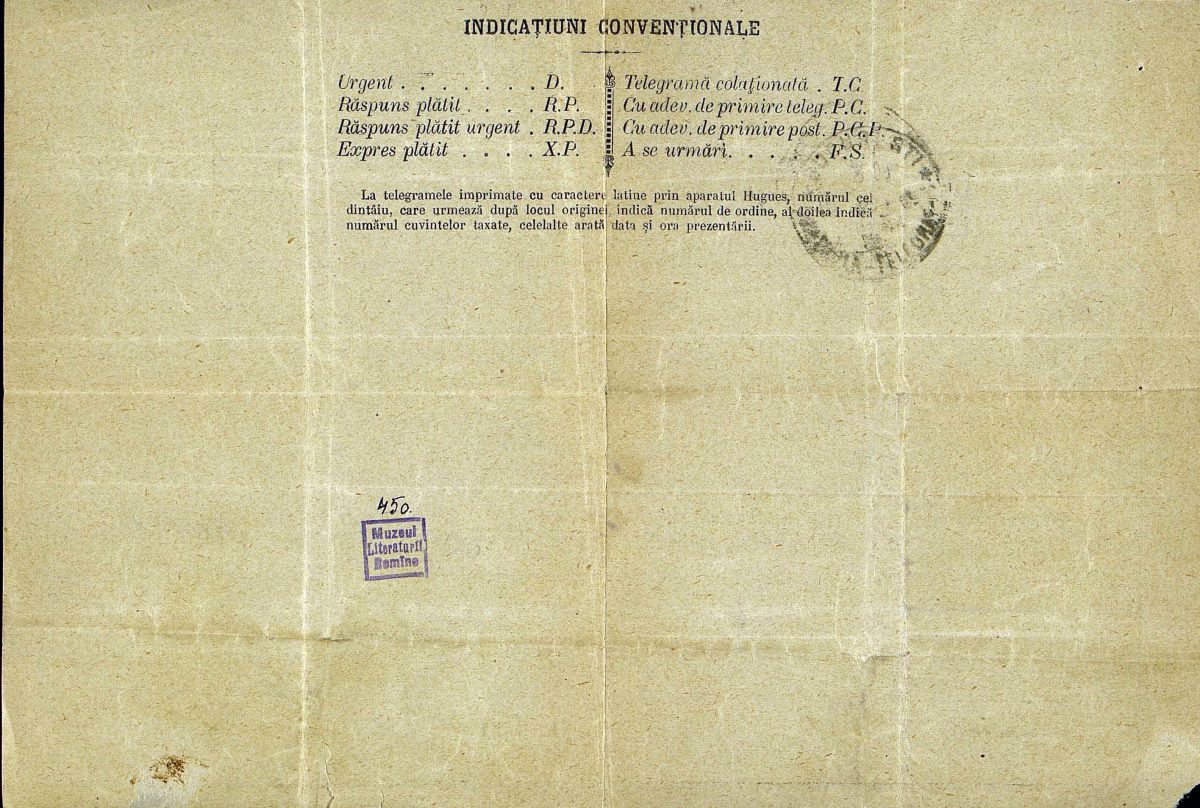 INDICAȚIUNI CONVENȚIONALE
Urgent . . . . . . . D.
Răspuns plătit . . . . R.P.
Răspuns plătit urgent . R.P.D.
Expres plătit . . . . X.P.
Telegramă colaționată . T.C
Cu adev. de primire teleg. P.C.
Cu adev. de primire post. P.C.P.
A se urmări. . . . . . F.S.
La telegramele imprimate cu caractere latine prin aparatul Hugues, numărul cel
dintâiu, care urmează după locul originei, indică numărul de ordine, al doilea indică
numărul cuvintelor taxate, celelalte arată data și ora prezentării.
450.
Muzeul
Literaturii
Romîne